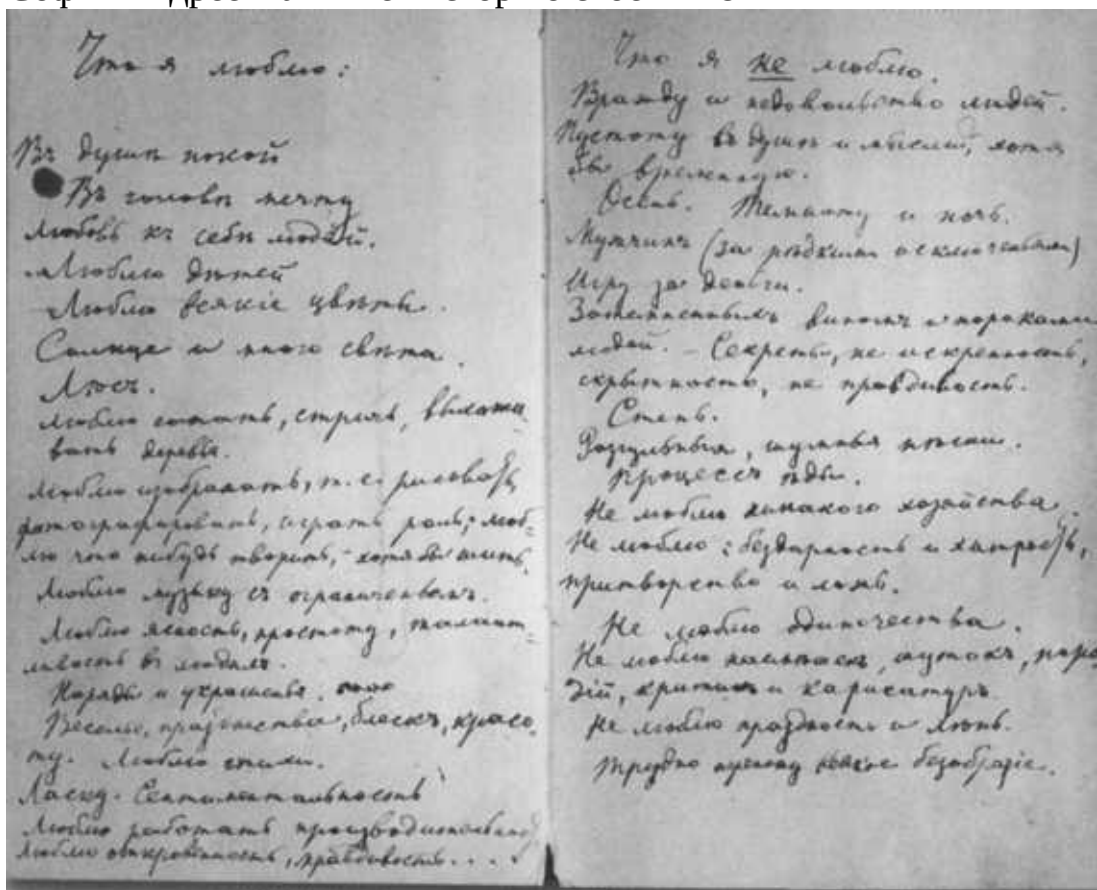 Что я люблю:
Въ душѣ покой
Въ головѣ мечту
Любовь къ себѣ людей.
Люблю дѣтей
Люблю всякіе цвѣты.
Солнце и много свѣта.
Лѣсъ.
Люблю сажать, стричь, выхажи-
вать деревья.
Люблю изображать, т. е. рисовать,
фотографировать, играть роль; люб-
лю что нибудь творить, – хотя бы шить.
Люблю музыку съ ограниченьемъ.
Люблю ясность, простоту, талант-
ливость въ людяхъ.
Наряды и украшенья.
Веселье, празднества, блескъ, красо-
ту. Люблю стихи.
Ласку. Сентиментальность
Люблю работать производительно
Люблю откровенность, правдивость . . . .
Что я не люблю.
Вражду и недовольство людей.
Пустоту въ душѣ и мысли, хотя
бы временную.
Осень. Темноту и ночь.
Мужчинъ (за рѣдкими исключеньями)
Игру за деньги.
Затемненныхъ виномъ и пороками
людей. – Секреты, не искренность,
скрытность, не правдивость.
Степь.
Разгульныя, шумныя пѣсни.
Процессъ ѣды.
Не люблю никакого хозяйства.
Не люблю: бездарность и хитрость,
притворство и ложь.
Не люблю одиночества.
Не люблю насмѣшекъ, шутокъ, паро
дій, критики и карикатуръ.
Не люблю праздность и лѣнь.
Трудно переношу всякое безобразіе.